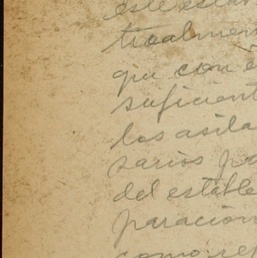 este esta
tualmen
que con e
suficient
los asila
sarios pa
del estable
paración
como re